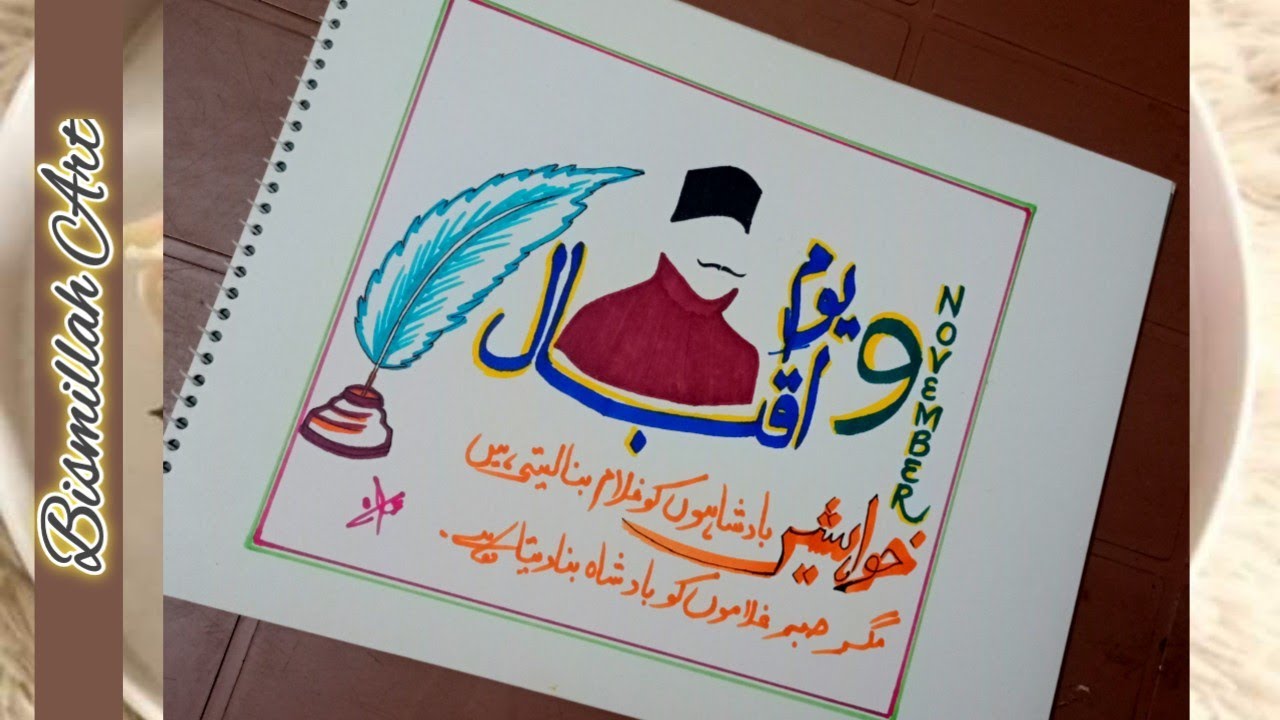 Bismillah Art
9 NOVEMBER
یوم
اقبال
خواہشیں بادشاہوں کو غلام بنا لیتی ہیں
مگر صبر غلاموں کو بادشاہ بنا دیتا ہے۔